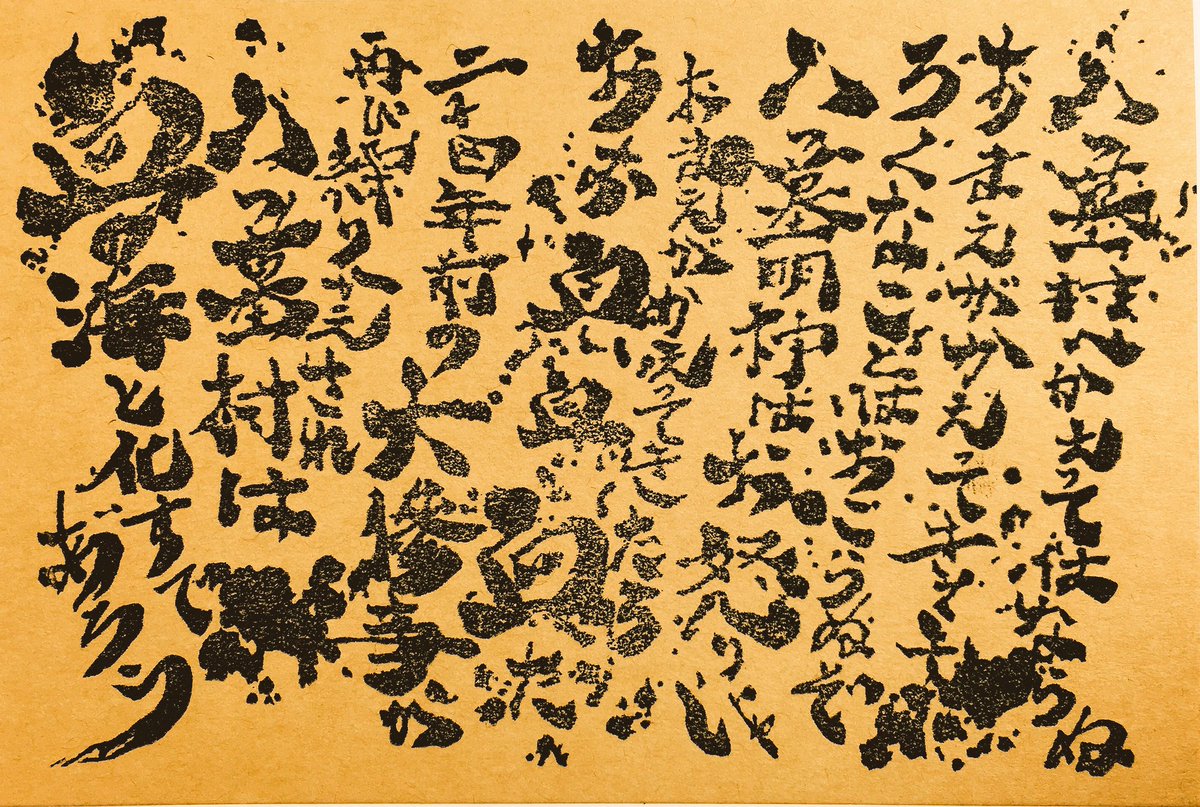 八墓村へかえって来てはならぬ
おまえがかえって来ても
ろくなことはおこらぬぞ
八墓明神はお怒りじゃ
おまえがかえってきたら
おお血血血だ
二十四年前の大惨事が
再び繰り返され
八墓村は
血の海と化すであろう